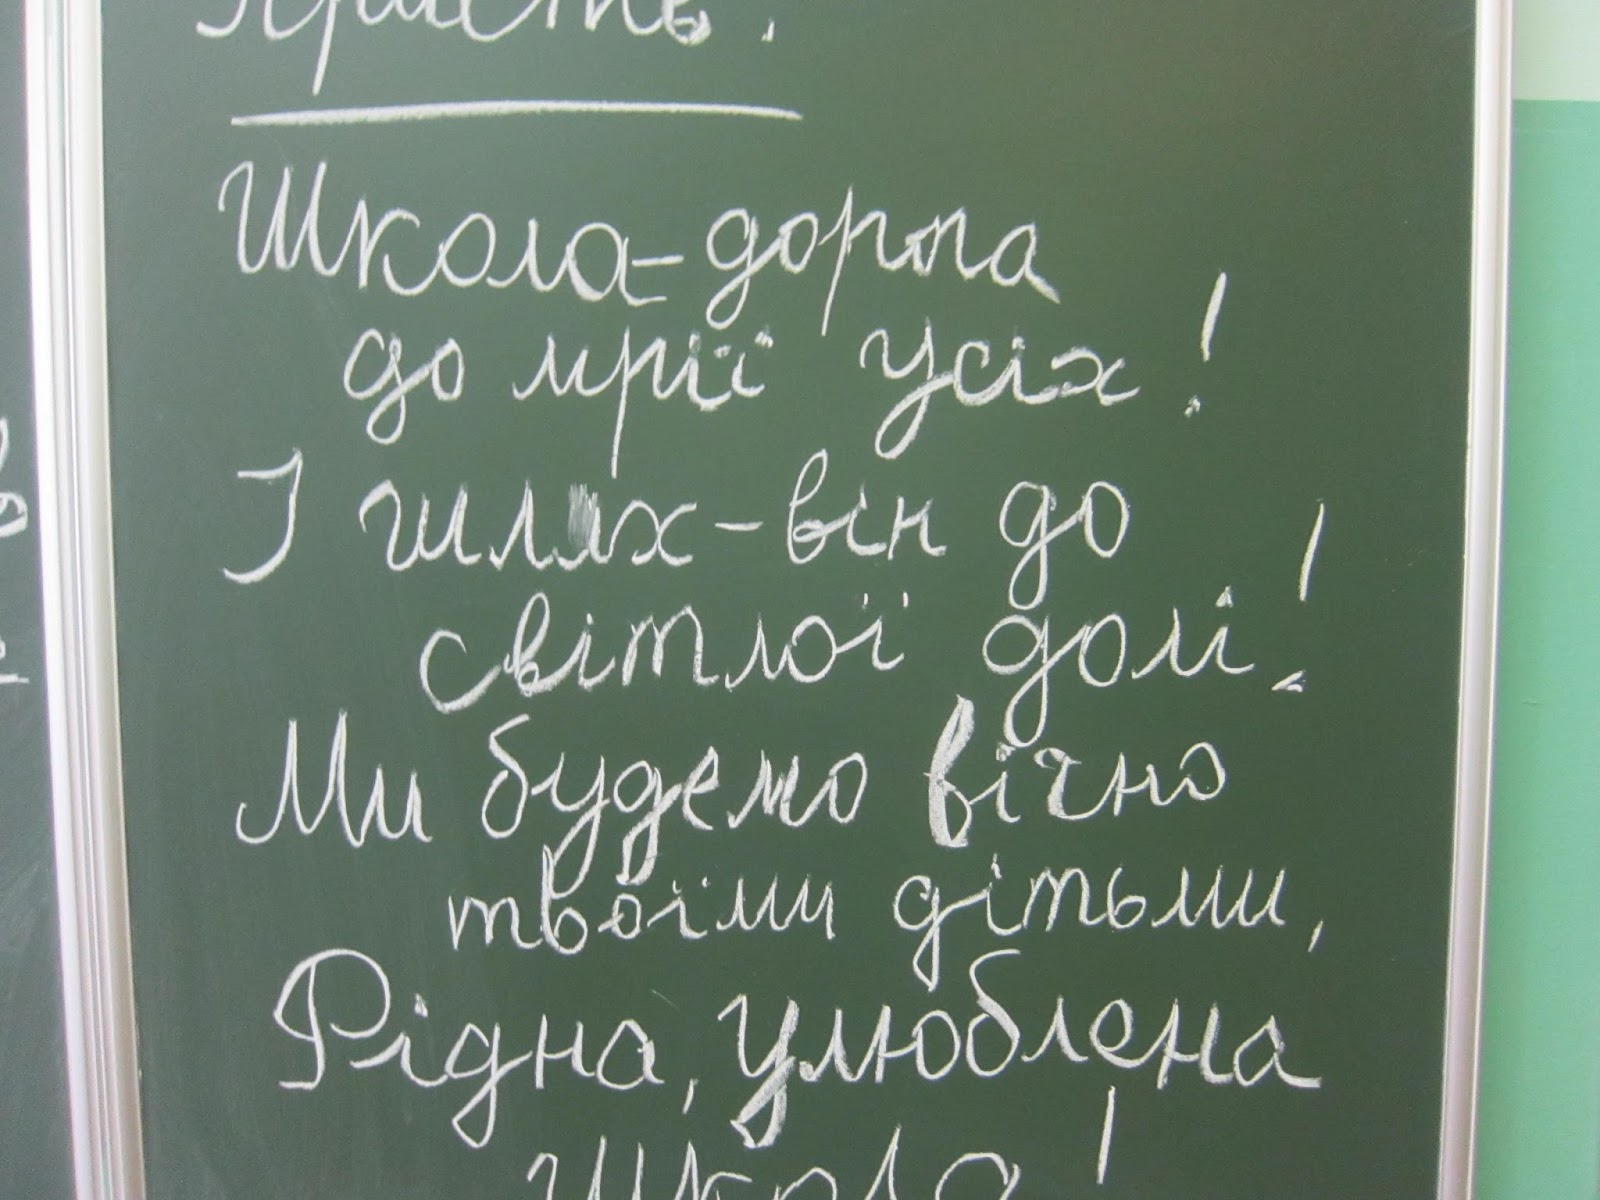 Школа – дорога
до мрії усіх!
І шлях – він до
світлої долі!
Ми будемо вічно
твоїми дітьми,
Рідна, улюблена
школа!